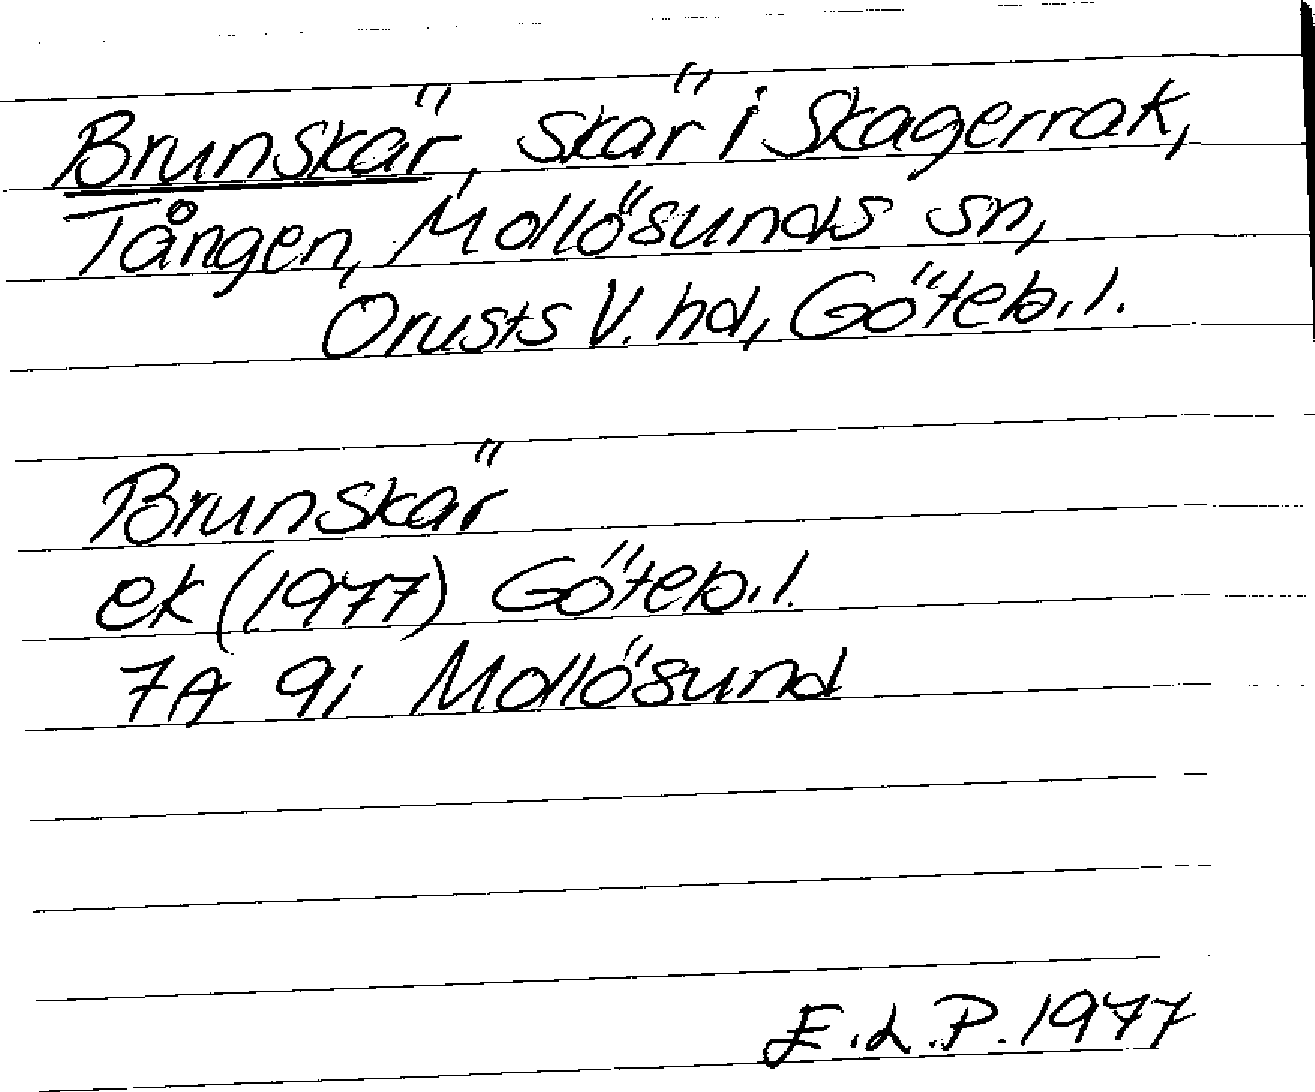 Brunskär, skär i Skagerrak,
Tången, Mollösunds sn,
Orusts V. hd, Göteb. l.
Brunskär
ek (1977) Göteb. l.
7A 9i Mollösund
E.L.P. 1977